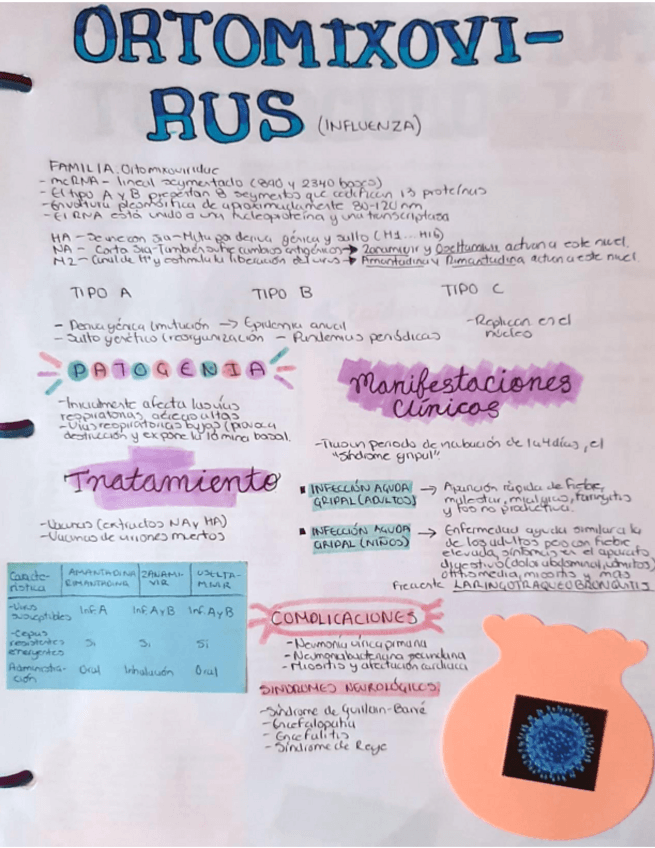 ORTOMIXOVI-
RUS (INFLUENZA)
FAMILIA: Ortomixoviridae
- mcRNA- lineal segmentado (890 y 2340 bases)
- El tipo A y B presentan 8 segmentos que codifican 13 proteínas
- Envoltura pleomórfica de aproximadamente 80-120 nm
- El RNA está unido a una nucleoproteína y una transcriptasa
HA - Se une con Sia - Muta por deriva génica y salto (H1... H16)
NA - Corta Sia - También sufre cambios antigénicos → Zanamivir y Oseltamivir actúan a este nivel.
M2 - Canal de H+ y estimula la liberación del virus → Amantadina y Rimantadina actúan a este nivel.
TIPO A TIPO B TIPO C
- Deriva génica (mutación → Epidemia anual
- Salto genético (reorganización - Pandemias periódicas
- Replican en el
núcleo
PATOGENIA
- Inicialmente afecta las vías
respiratorias
- Vías respiratorias bajas (provoca
destrucción y expone la lámina basal.
Manifestaciones
Clínicas
- Tras un periodo de incubación de 1 a 4 días, el
"Síndrome gripal".
INFECCIÓN AGUDA
GRIPAL (ADULTOS) → Aparición rápida de fiebre,
malestar, mialgias, faringitis
y tos no productiva.
INFECCIÓN AGUDA
GRIPAL (NIÑOS) → Enfermedad aguda similar a la
de los adultos pero con fiebre
elevada, síntomas en el aparato
digestivo (dolor abdominal, vómitos)
otitis media, miositis y más
frecuente LARINGOTRAQUEOBRONQUITIS
Tratamiento
- Vacunas (extractos NA y HA)
- Vacunas de viriones muertos
Caracte-
rística AMANTADINA
RIMANTADINA ZANAMI-
VIR OSELTA-
MIVIR
- Virus
susceptibles Inf. A Inf. A y B Inf. A y B
- Cepas
resistentes
emergentes Si Si Sí
Administra-
ción Oral Inhalación Oral
COMPLICACIONES
- Neumonía vírica primaria
- Neumonía bacteriana secundaria
- Miositis y afectación cardiaca
SINDROMES NEUROLÓGICOS:
- Síndrome de Guillain-Barré
- Encefalopatía
- Encefalitis
- Síndrome de Reye